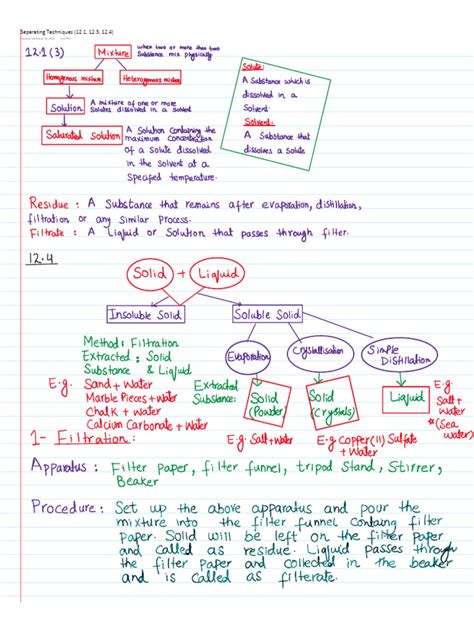 Separating Techniques (12.1, 12.3, 12.4)
12.1(3)
Mixture
when two or more than two
Substance mix physically
Homogenous mixture
Heterogenous mixture
Solution
A mixture of one or more
Solutes dissolved in a solvent
Saturated Solution
A Solution Containing the
maximum concentration
of a solute dissolved
in the Solvent at a
Specified temperature.
Solute:
A Substance which is
dissolved in a
Solvent.
Solvent:
A Substance that
dissolves a Solute
Residue : A Substance that remains after evaporation, distillation,
filtration or any Similar Process.
Filtrate : A Liquid or Solution that passes through filter.
12.4
Solid + Liquid
Insoluble Solid
Soluble Solid
Method: Filtration
Extracted : Solid
Substance & Liquid
Evaporation
Crystallisation
Simple
Distillation
E.g. Sand + Water
Marble Pieces + Water
Chalk + Water
Calcium Carbonate + Water
Extracted
Substance:
Solid
(Powder)
Solid
(Crystals)
Liquid
E.g. Salt + Water
E.g Copper(II) Sulfate
+ Water
E.g
Salt +
Water
*(Sea
water)
1- Filtration :
Apparatus : Filter paper, filter funnel, tripod Stand, Stirrer,
Beaker
Procedure : Set up the above apparatus and pour the
mixture into the filter funnel Containg filter
paper. Solid will be left on the filter paper
and called as residue. Liquid passes through
the filter paper and collected in the beaker
and is called as filterate.